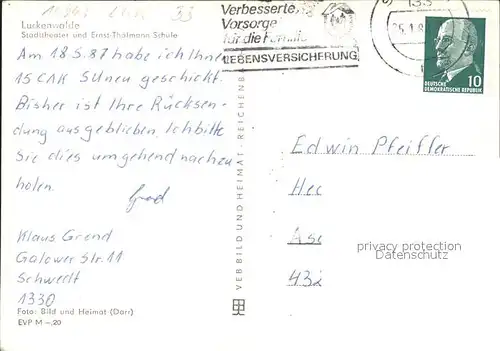 Luckenwalde
Stadttheater und Ernst-Thälmann Schule
Am 18.5.87 habe ich Ihnen
15 CAK SUneu geschickt.
Bisher ist Ihre Rücksen-
dung ausgeblieben. Ich bitte
Sie dies umgehend nachzu
holen.
Klaus Grend
Galower Str. 11
Schwedt
1330
Foto: Bild und Heimat (Darr)
EVP M -,20
VEB BILD UND HEIMAT · REICHENBA
Verbesserte
Vorsorge
für die Familie
LEBENSVERSICHERUNG
133
10
DEUTSCHE
DEMOKRATISCHE REPUBLIK
Edwin Pfeiffer
Hec
Asc
432
privacy protection
Datenschutz